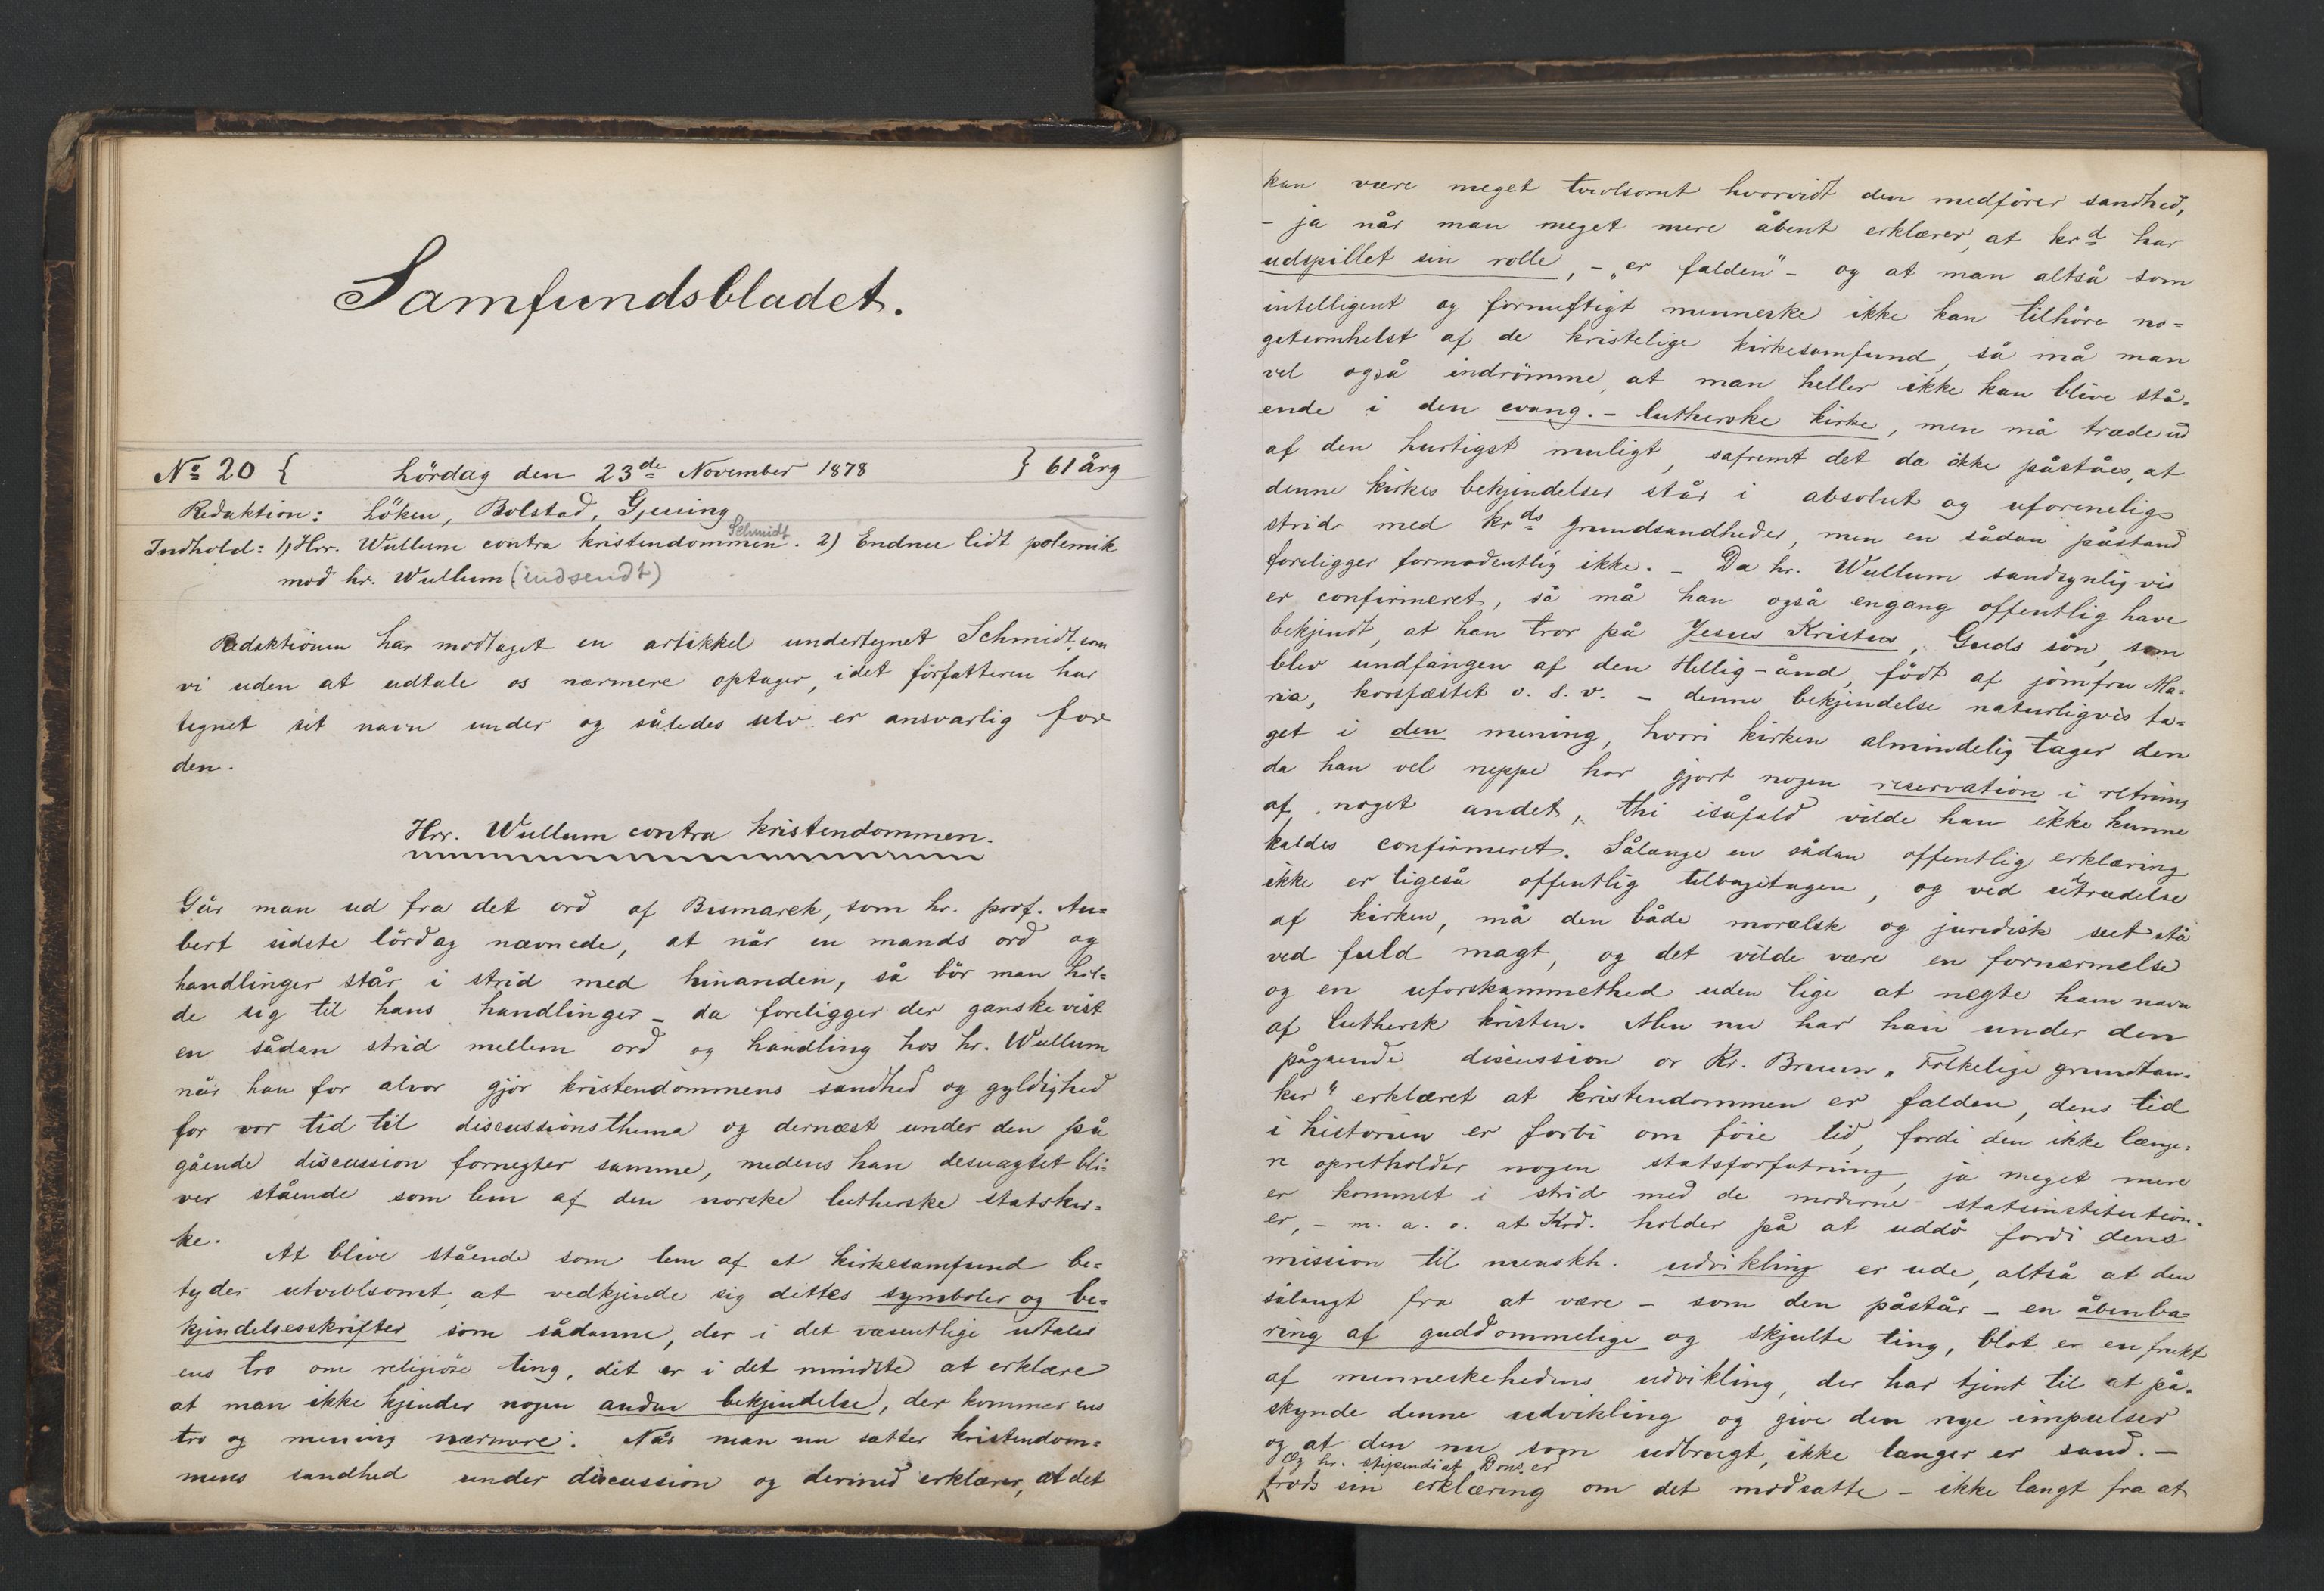 Samfundsbladet.
No 20 { Lördag den 23de November 1878 } 61 årg
Redaktion: Löken, Bolstad, Gjessing
Schmidt
Indhold: 1) Hrr. Wullum contra kristendommen. 2) Endnu lidt polemik
mod hr. Wullum (indsendt)
Redaktionen har modtaget en artikkel undertegnet Schmidt, som
vi uden at udtale os nærmere optager, idet forfatteren har
tegnet sit navn under og således selv er ansvarlig for
den.
Hrr. Wullum contra kristendommen.
Går man ud fra det ord af Bismarck, som hr. prof. Au=
bert sidste lördag nævnede, at når en mands ord og
handlinger står i strid med hinanden, så bör man hol=
de sig til hans handlinger – da foreligger der ganske vist
en sådan strid mellem ord og handling hos hr. Wullum
når han for alvor gjör kristendommens sandhed og gyldighed
for vor tid til discussionsthema og dernæst under den på
gående discussion fornegter samme, medens han desuagtet bli=
ver stående som lem af den norske lutherske statskir=
ke.
At blive stående som lem af et kirkesamfund be=
tyder utvivlsomt, at vedkjende sig dettes symboler og be=
kjendelsesskrifter som sådanne, der i det væsentlige udtaler
ens tro om religiöse ting, det er i det mindste at erklære
at man ikke kjender nogen anden bekjendelse, der kommer ens
tro og mening nærmere. Når man nu sætter kristendom=
mens sandhed under discussion og derved erklærer, at det
kan være meget tvivlsomt hvorvidt den medförer sandhed,
– ja når man meget mere åbent erklærer, at krd har
udspillet sin rolle, – "er falden" – og at man altså som
intelligent og fornuftigt menneske ikke kan tilhöre no=
getsomhelst af de kristelige kirkesamfund, så må man
vel også indrömme, at man heller ikke kan blive stå=
ende i den evang.-lutherske kirke, men må træde ud
af den hurtigst muligt, safremt det da ikke påståes, at
denne kirkes bekjendelser står i absolut og uforenelig
strid med krds grundsandheder, men en sådan påstand
foreligger formodentlig ikke. – Da hr. Wullum sandsynligvis
er confirmeret, så må han også engang offentlig have
bekjendt, at han tror på Jesus Kristus, Guds sön, som
blev undfangen af den Hellig-ånd, födt af jomfru Ma=
ria, korsfæstet o. s. v. – denne bekjendelse naturligvis ta=
get i den mening, hvori kirken almindelig tager den
da han vel neppe har gjort nogen reservation i retning
af noget andet, thi isåfald vilde han ikke kunne
kaldes confirmeret. Sålænge en sådan offentlig erklæring
ikke er ligeså offentlig tilbagetagen, og ved udtrædelse
af kirken, må den både moralsk og juridisk seet stå
ved fuld magt, og det vilde være en fornærmelse
og en uforskammethed uden lige at negte ham navn
af luthersk kristen. Men nu har han under den
pågaende discussion or Kr. Bruun "Folkelige grundtan=
ker" erklæret at kristendommen er falden, dens tid
i historien er forbi om föie tid, fordi den ikke længe=
re opretholder nogen statsforfatning, ja meget mere
er kommet i strid med de moderne statsinstitution=
er, – m. a. o. at Krd. holder på at uddö fordi dens
mission til menskh. udvikling er ude, altså at den
sålangt fra at være – som den påstår – en åbenba=
ring af guddommelige og skjulte ting, blot er en frukt
af menneskehedens udvikling, der har tjent til at på=
skynde denne udvikling og give den nye impulser
og at den nu som udbrugt, ikke længer er sand. –
Og hr. stipendiat Dons. er
trods sin erklæring om det modsatte – ikke langt fra at